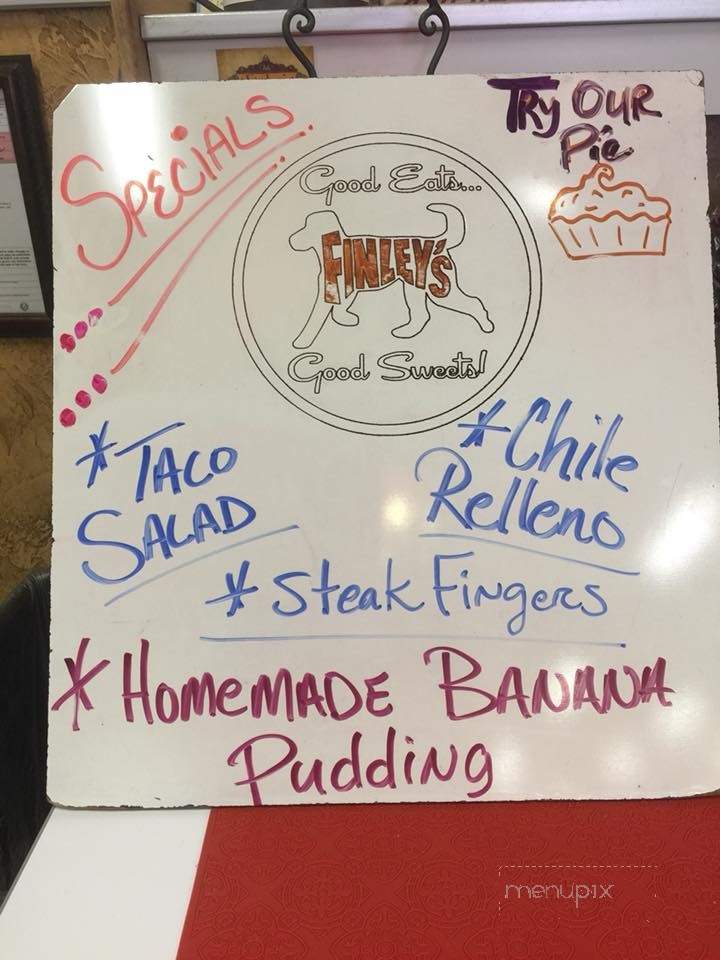 SPECIALS
TRY OUR
Pie
Good Eats...
FINLEY'S
Good Sweets!
* TACO
SALAD
* Chile
Relleno
* Steak Fingers
* HOMEMADE BANANA
Pudding
menupix